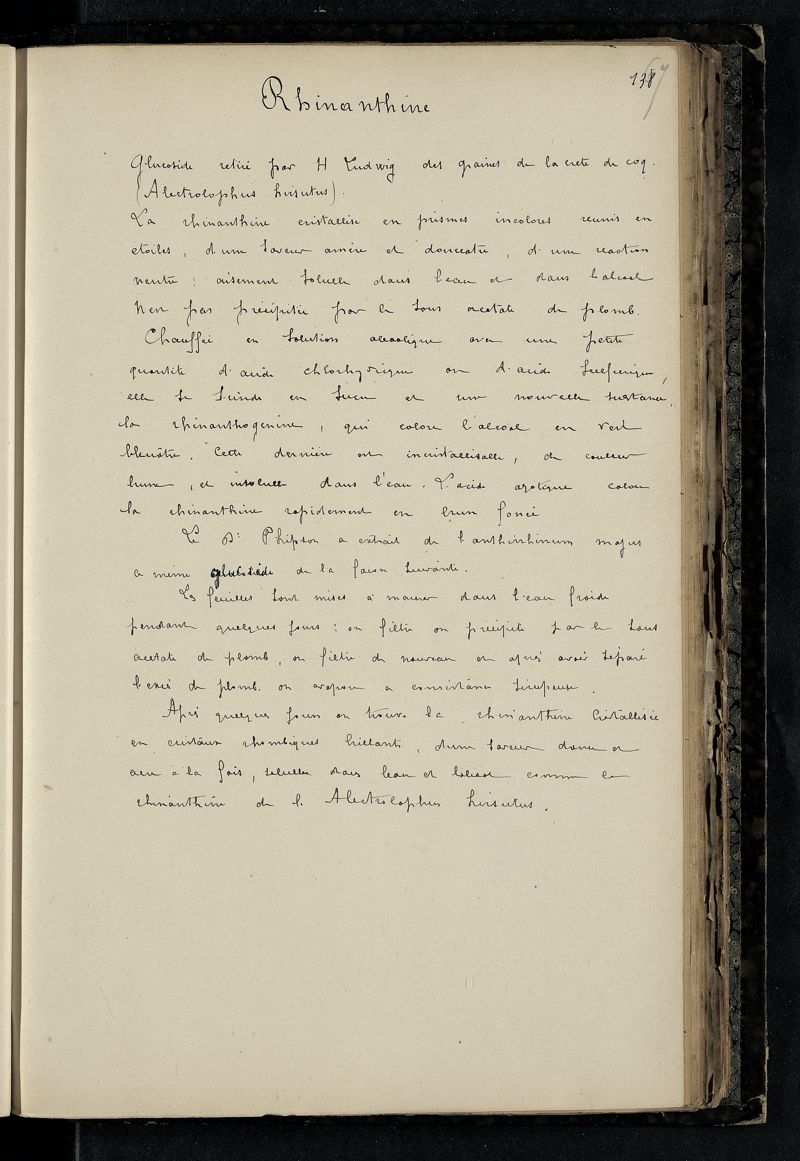 138
Rhinanthine
Glucoside retiré par H Ludwig des graines de la crete de coq.
(Alectrolophus hirsutus).
La rhinanthine cristallise en prismes incolores reunis en
etoiles, d'une saveur amère et douceatre, d'une reaction
neutre; aisement soluble dans l'eau et dans l'alcool
N'est pas précipitée par le sous acetate de plomb.
Chauffée en solution alcoolique avec une petite
quantité d'acide chlorhydrique ou d'acide sulfurique,
elle se scinde en sucre et une nouvelle substance,
la rhinanthogenine, qui colore l'alcool en vert
bleuâtre. Cette dernière est incristallisable, de couleur
brune, et insoluble dans l'eau. L'acide azotique colore
la rhinanthine rapidement en brun foncé
Le Dr Phipson a extrait de l'anthirrhinum majus
ce même glucoside de la facon suivante.
Les feuilles sont mises à macerer dans l'eau froide
pendant quelques jours: on filtre on précipite par le sous
acetate de plomb, on filtre de nouveau et après avoir séparé
l'exces de plomb. on evapore a consistance sirupeuse.
Après quelques jours on trouve la rhinanthine cristallisée
en cristaux rhombiques brillants, d'une saveur douce et
acre à la fois, soluble dans l'eau et l'alcool comme la
rhinanthine de l'Alectrolophus hirsutus.